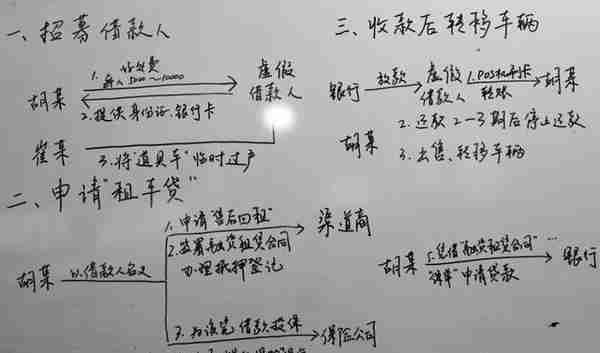 一、招募借款人
1. 好处费
每人5000~10000
胡某
虚假
借款人
2.提供身份证、银行卡
崔某
3.将"道具车"临时过户
二、申请"租车贷"
胡某
以借款人名义
1.申请"售后回租"
渠道商
2.签署融资租赁合同
办理抵押登记
3.为该笔借款投保
保险公司
三、收款后转移车辆
银行
放款
虚假
借款人
1.POS机刷卡
转账
胡某
胡某
2.还款2-3期后停止还款
3.出售、转移车辆
胡某
凭借"融资租赁合同"…
申请贷款
银行